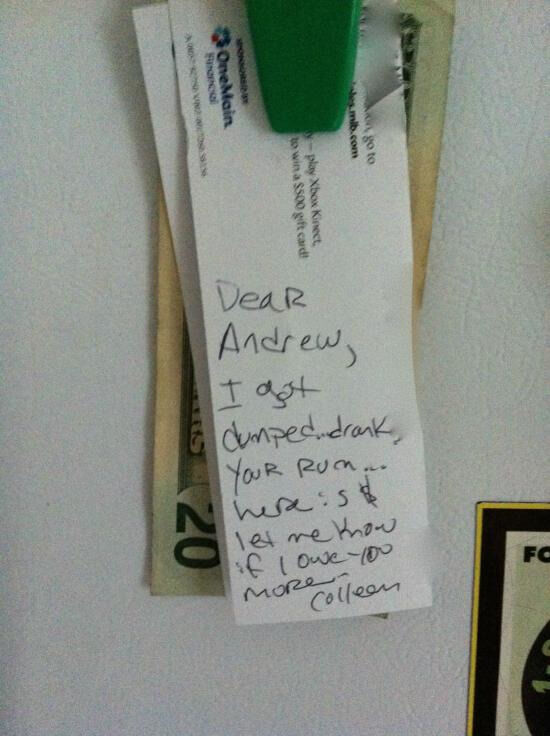 SPONSORED BY
OneMain
Financial
go to
les.mlb.com
y – play Xbox Kinect,
to win a $500 gift card!
Dear
Andrew,
I got
dumped...drank
your rum...
here is $
let me know
if I owe you
more
Colleen
20
FO